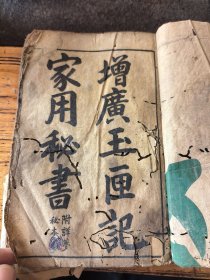 增廣玉匣記
家用秘書
附詳夢
秘本